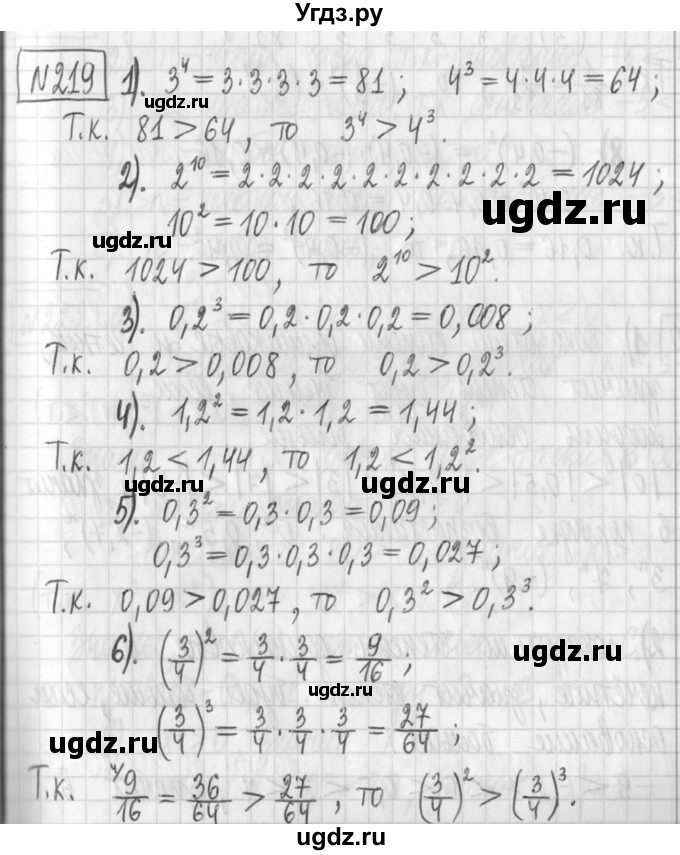 Угдз.ру
N219 1). 3⁴ = 3·3·3·3 = 81; 4³ = 4·4·4 = 64;
ugdz.ru
Т.к. 81 > 64, то 3⁴ > 4³.
2). 2¹⁰ = 2·2·2·2·2·2·2·2·2·2 = 1024;
ugdz.ru
10² = 10·10 = 100;
ugdz.ru
Т.к. 1024 > 100, то 2¹⁰ > 10².
3). 0,2³ = 0,2·0,2·0,2 = 0,008;
ugdz.ru
Т.к. 0,2 > 0,008, то 0,2 > 0,2³.
4). 1,2² = 1,2·1,2 = 1,44;
Т.к. 1,2 < 1,44, то 1,2 < 1,2².
ugdz.ru ugdz.ru
5). 0,3² = 0,3·0,3 = 0,09;
0,3³ = 0,3·0,3·0,3 = 0,027;
Т.к. 0,09 > 0,027, то 0,3² > 0,3³.
6). (3/4)² = 3/4 · 3/4 = 9/16;
ugdz.ru
ugdz.ru
(3/4)³ = 3/4 · 3/4 · 3/4 = 27/64;
ugdz.ru
Т.к. ⁴⁄9/16 = 36/64 > 27/64, то (3/4)² > (3/4)³.
ugdz.ru